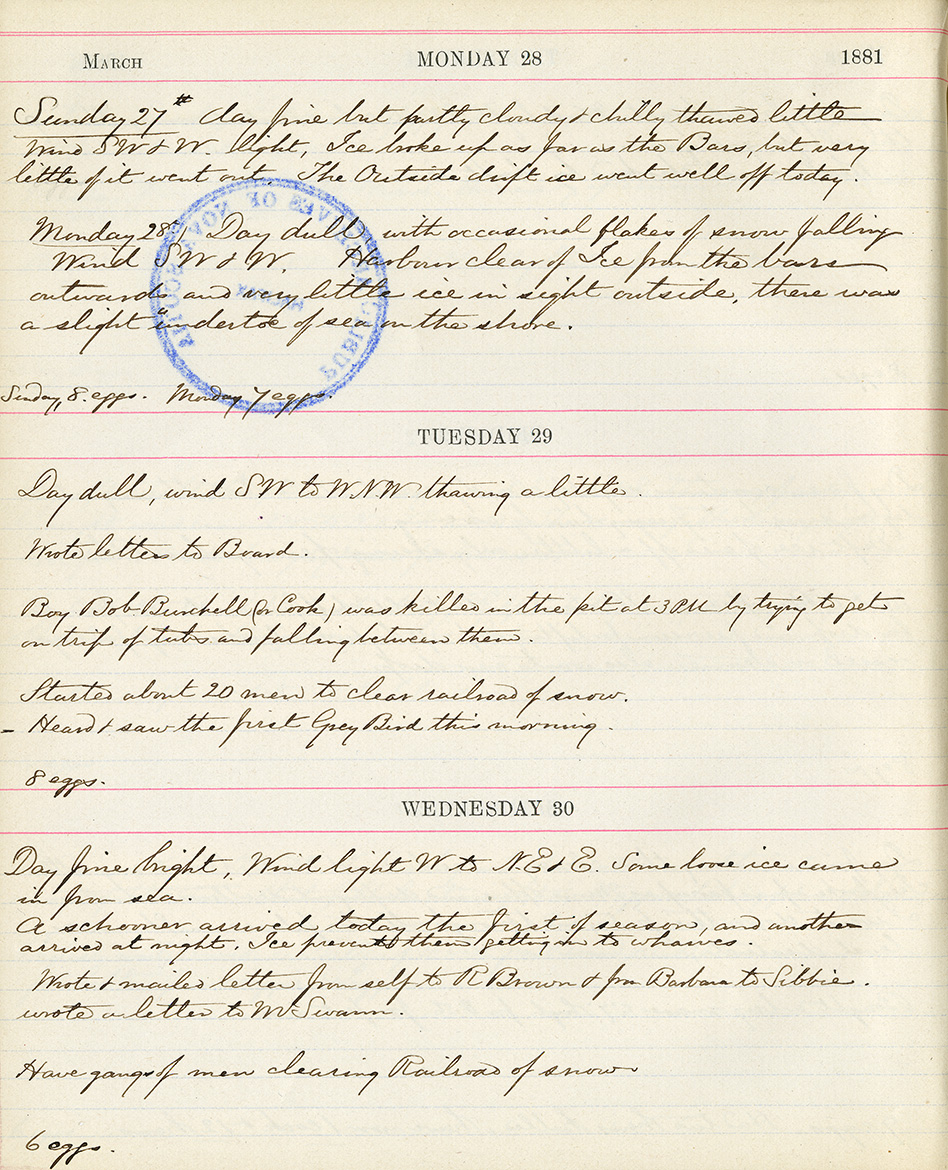 March MONDAY 28 1881
Sunday 27th day fine but partly cloudy & chilly thawed little
Wind SW & W. light, Ice broke up as far as the Bars, but very
little of it went out. The Outside drift ice went well off today.
Monday 28th Day dull, with occasional flakes of snow falling
Wind SW & W. Harbour clear of Ice from the bars
outwards and very little ice in sight outside, there was
a slight "undertoe of sea on the shore.
PUBLIC ARCHIVES OF NOVA SCOTIA
Sunday, 8. eggs. Monday 7 eggs.
TUESDAY 29
Day dull, wind SW to WNW. thawing a little.
Wrote letters to Board.
Boy Bob Burchell (or Cook) was killed in the pit at 3 PM by trying to get
on trip of tubs and falling between them.
Started about 20 men to clear railroad of snow.
- Heard & saw the first Grey Bird this morning.
8 eggs.
WEDNESDAY 30
Day fine bright, Wind light W to N.E & E. Some loose ice came
in from sea.
A schooner arrived today the first of season, and another
arrived at night. Ice prevents them getting in to wharves.
Wrote & mailed letter from self to R Brown & from Barbara to Sibbie.
wrote a letter to Mr Swann.
Have gangs of men clearing Railroad of snow
6 eggs.